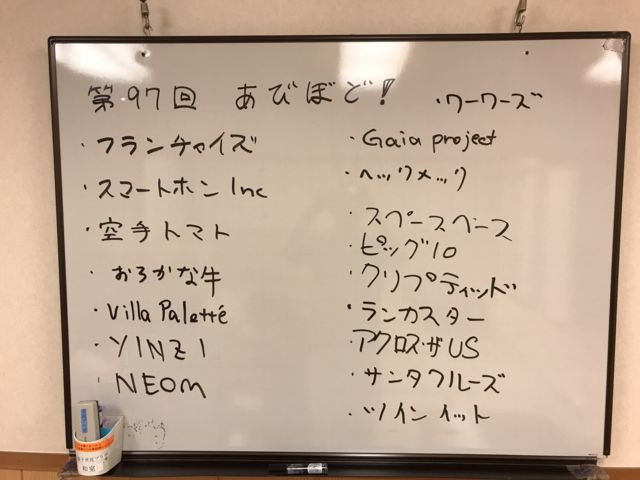 第97回 あびぼど!
・フランチャイズ
・スマートホン Inc
・空手トマト
・おろかな牛
・Villa Paletté
・YINZI
・NEOM
・ワーワーズ
・Gaia project
・ヘックメック
・スペースベース
・ピッグ10
・クリプティッド
・ランカスター
・アクロス・ザUS
・サンタクルーズ
・ツインイット
和室